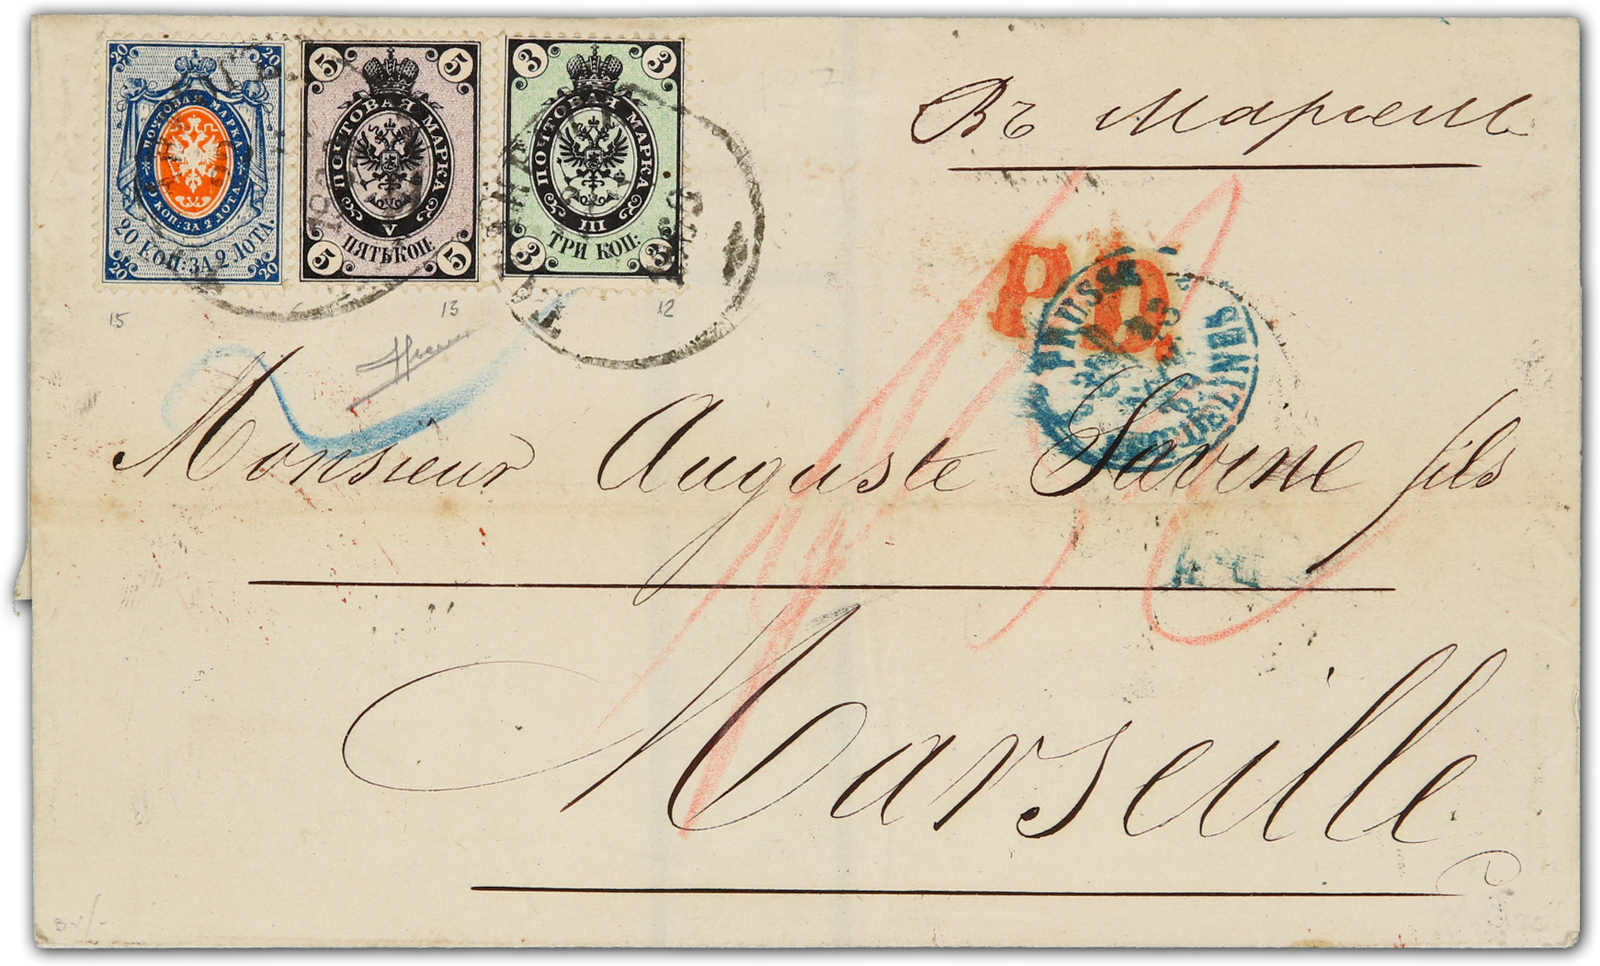 20 20
ПОЧТОВАЯ МАРКА
20 КОП: ЗА 2 ЛОТА.
20 КОП: ЗА 2 ЛОТА.
20 20
5 5
ПОЧТОВАЯ МАРКА
V
ПЯТЬ КОП:
5 5
3 3
ПОЧТОВАЯ МАРКА
III
ТРИ КОП:
3 3
15 13 12
Въ Марсель
P.D.
PRUSSE
Monsieur Auguste Savine fils
Marseille